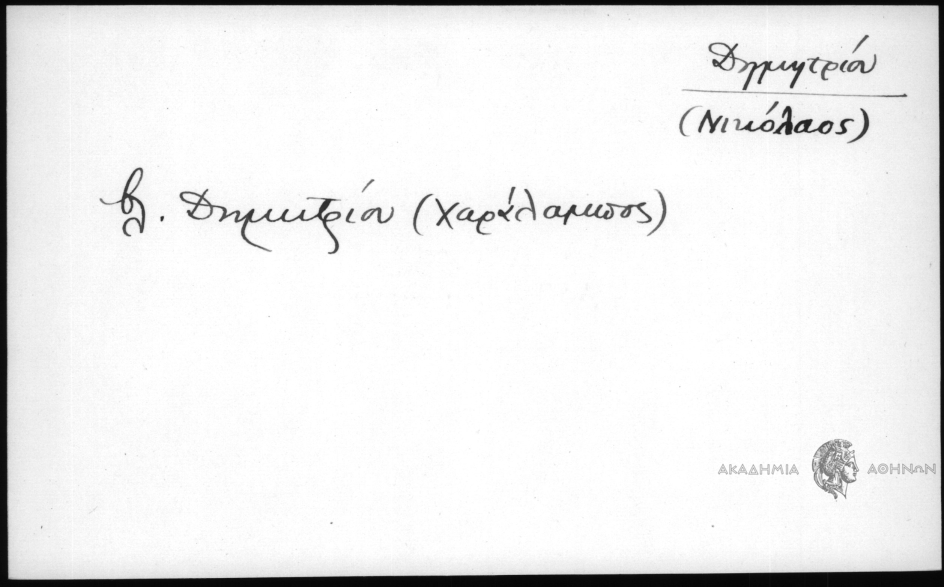 Δημητρίου
(Νικόλαος)
βλ. Δημητρίου (Χαράλαμπος)
ΑΚΑΔΗΜΙΑ ΑΘΗΝΩΝ